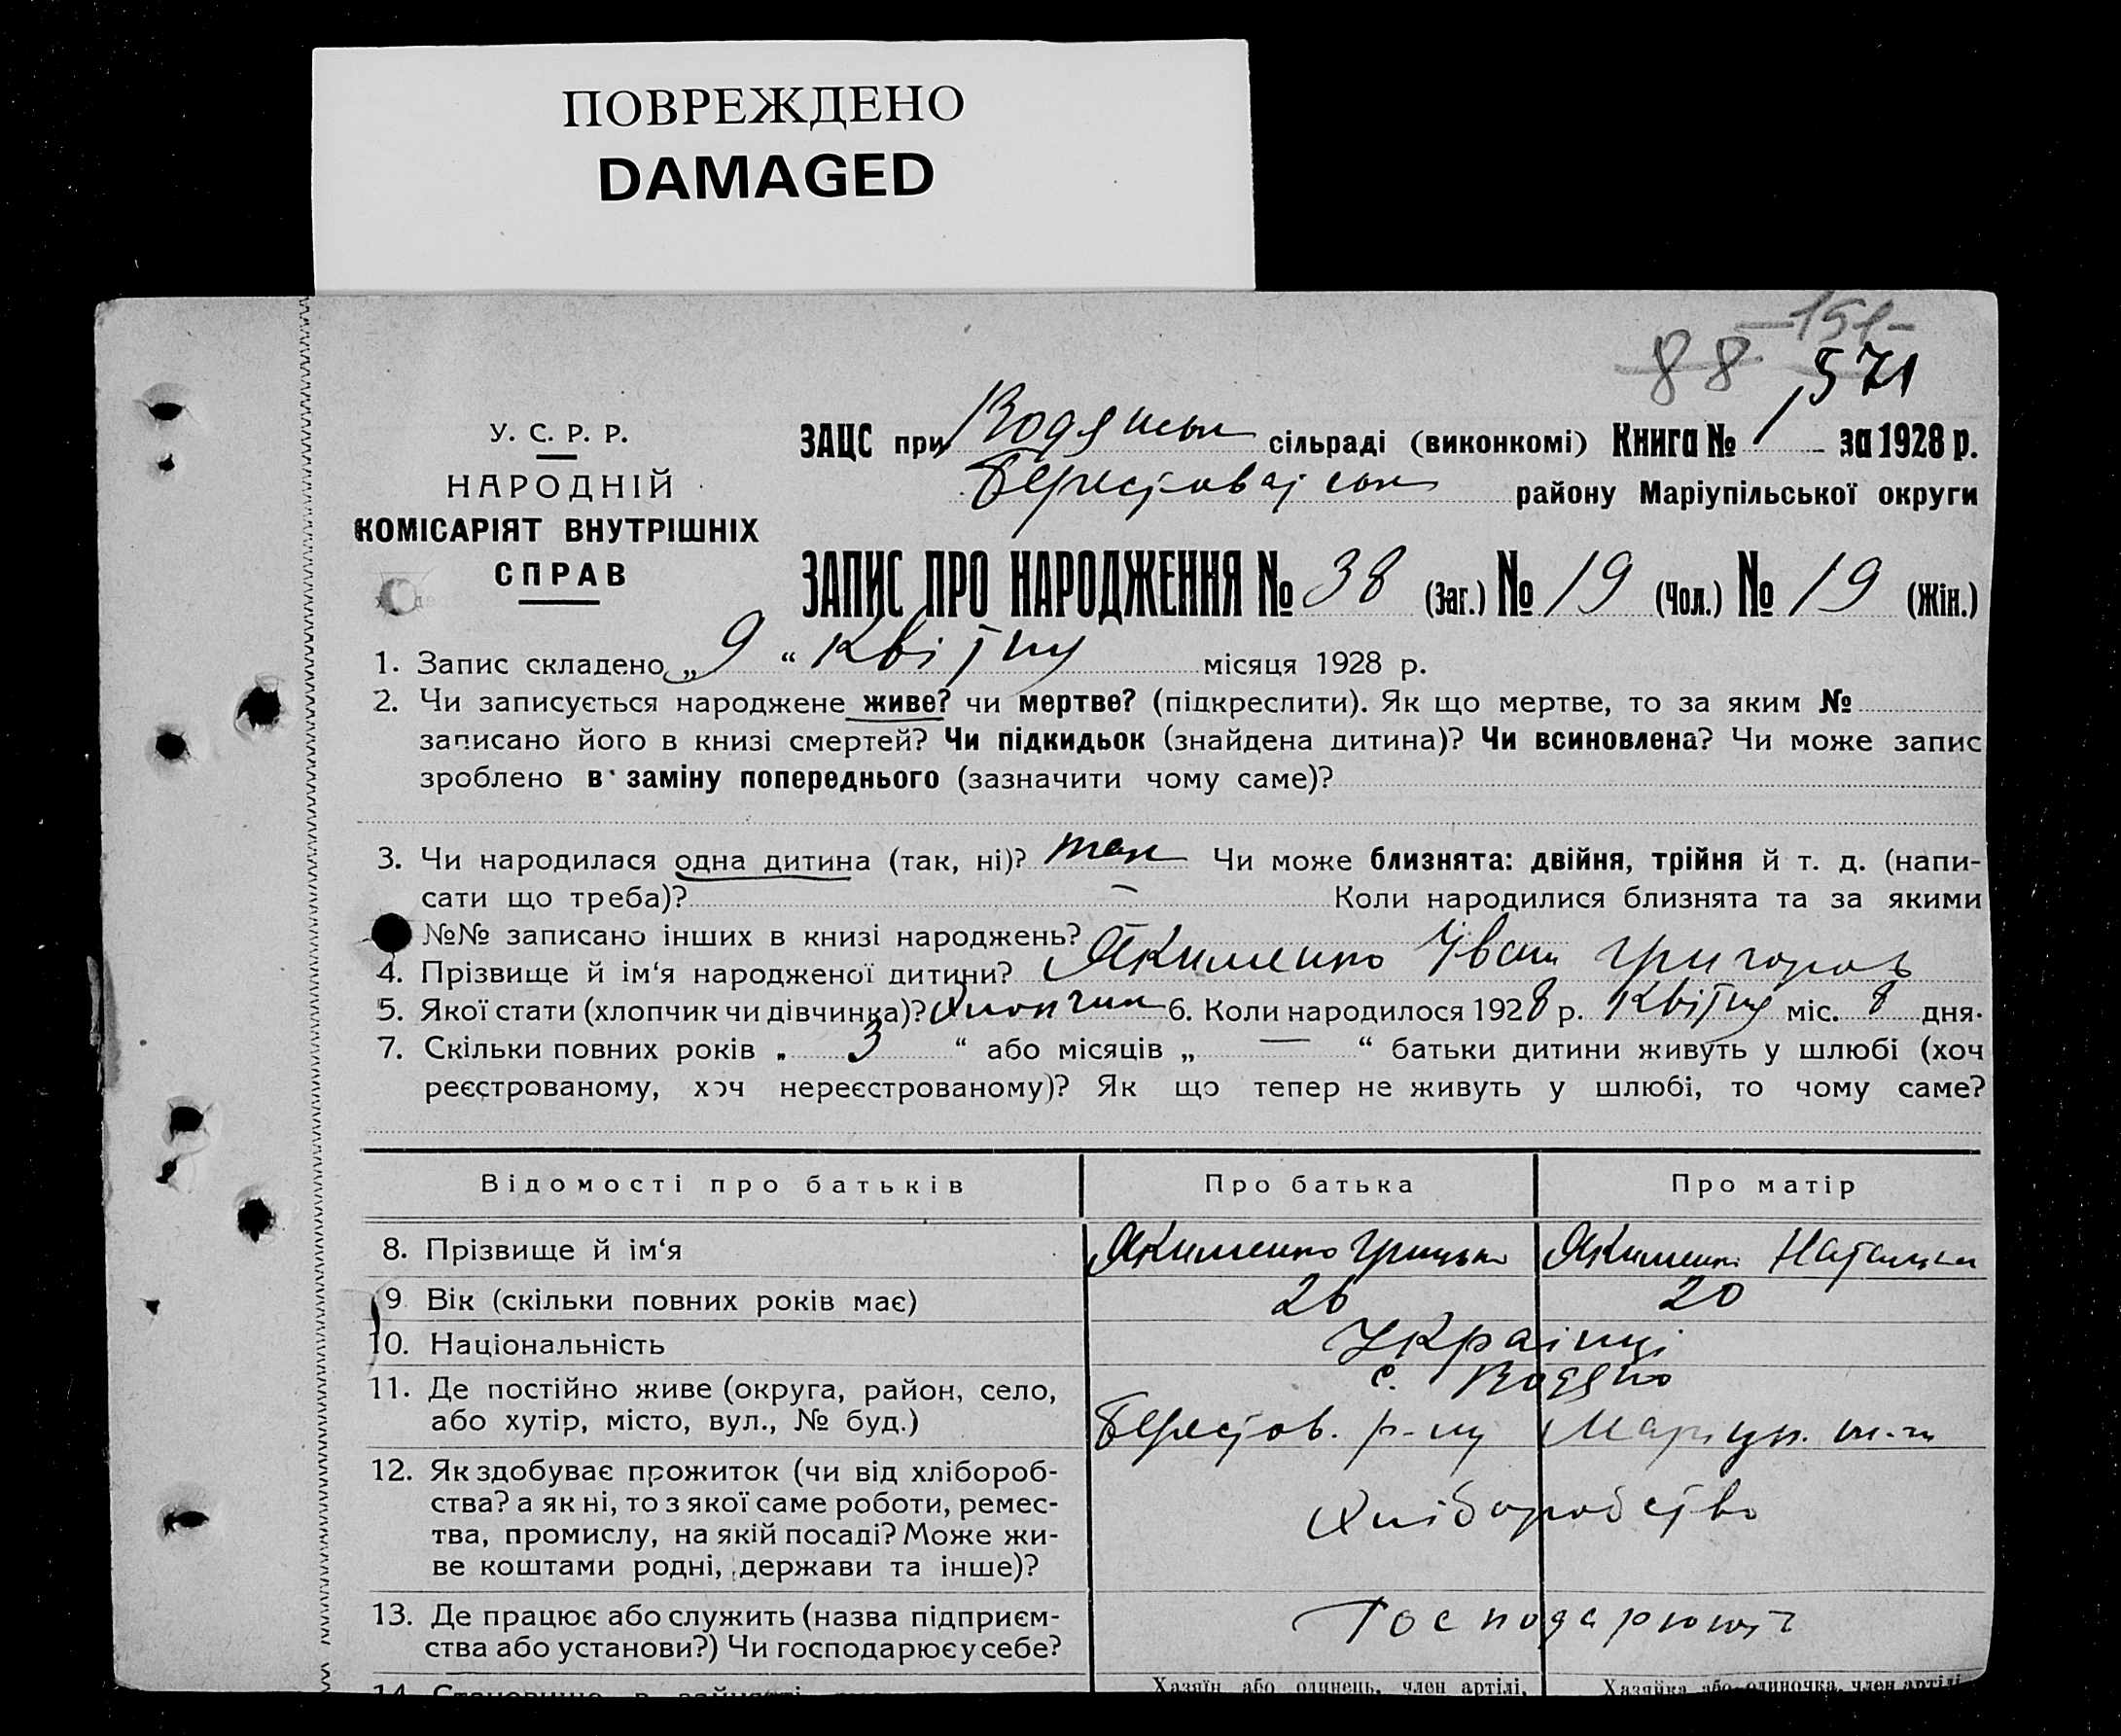 ПОВРЕЖДЕНО
DAMAGED
—151—
88 571
У. С. Р. Р.
НАРОДНІЙ
КОМІСАРІЯТ ВНУТРІШНІХ
СПРАВ
ЗАЦС при Водянськ сільраді (виконкомі) Книга № 1 за 1928 р.
Берестоватськ району Маріупільської округи
ЗАПИС ПРО НАРОДЖЕННЯ № 38 (Заг.) № 19 (Чол.) № 19 (Жін.)
1. Запис складено „ 9 “ Квітня місяця 1928 р.
2. Чи записується народжене живе? чи мертве? (підкреслити). Як що мертве, то за яким №
записано його в книзі смертей? Чи підкидьок (знайдена дитина)? Чи всиновлена? Чи може запис
зроблено в заміну попереднього (зазначити чому саме)?
3. Чи народилася одна дитина (так, ні)? так Чи може близнята: двійня, трійня й т. д. (напи-
сати що треба)? — Коли народилися близнята та за якими
№№ записано інших в книзі народжень? —
4. Прізвище й ім‘я народженої дитини? Якименко Іван Григоров
5. Якої стати (хлопчик чи дівчинка)? Хлопчик 6. Коли народилося 1928 р. Квітня міс. 8 дня.
7. Скільки повних років „ 3 “ або місяців „ — “ батьки дитини живуть у шлюбі (хоч
реєстрованому, хоч нереєстрованому)? Як що тепер не живуть у шлюбі, то чому саме?
Відомості про батьків Про батька Про матір
8. Прізвище й ім‘я Якименко Грицько Якименко Наталка
9. Вік (скільки повних років має) 26 20
10. Національність Українці
11. Де постійно живе (округа, район, село, с. Водяно
або хутір, місто, вул., № буд.) Берестов. р-ну Маріуп.
12. Як здобуває прожиток (чи від хлібороб-
ства? а як ні, то з якої саме роботи, ремес- Хліборобство
тва, промислу, на якій посаді? Може жи-
ве коштами родні, держави та інше)?
13. Де працює або служить (назва підприєм- Господарюють
ства або установи?) Чи господарює у себе?
14. Становище в занятті Хазяїн або одинець, член артілі, Хазяйка або одиночка, член артілі